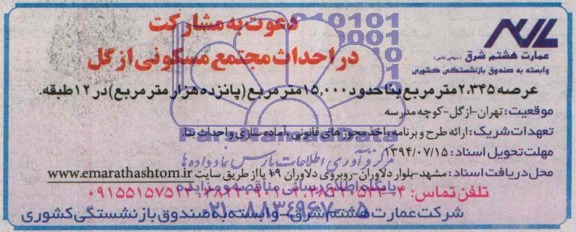 دعوت به مشارکت
در احداث مجتمع مسکونی ازگل
عمارت هشتم شرق (سهامی خاص)
وابسته به صندوق بازنشستگی کشوری
عرصه ۲.۳۴۵ متر مربع بنا حدود ۱۵,۰۰۰ متر مربع (پانزده هزار متر مربع) در ۱۲ طبقه.
موقعیت: تهران-ازگل-کوچه مدرسه
تعهدات شریک: ارائه طرح و برنامه، اخذ مجوزهای قانونی، آماده سازی و احداث بنا.
مهلت تحویل اسناد: ۱۳۹۴/۰۷/۱۵
محل دریافت اسناد: مشهد-بلوار دلاوران-روبروی دلاوران ۷۹ یا از طریق سایت www.emarathashtom.ir
تلفن تماس:
شرکت عمارت هشتم شرق-وابسته به صندوق بازنشستگی کشوری
ParsNamadData
مرکز فرآوری اطلاعات پارس نماد داده ها
پایگاه اطلاع رسانی مناقصه و مزایده
۰۲۱-۸۸۳۴۹۶۷۰-۵